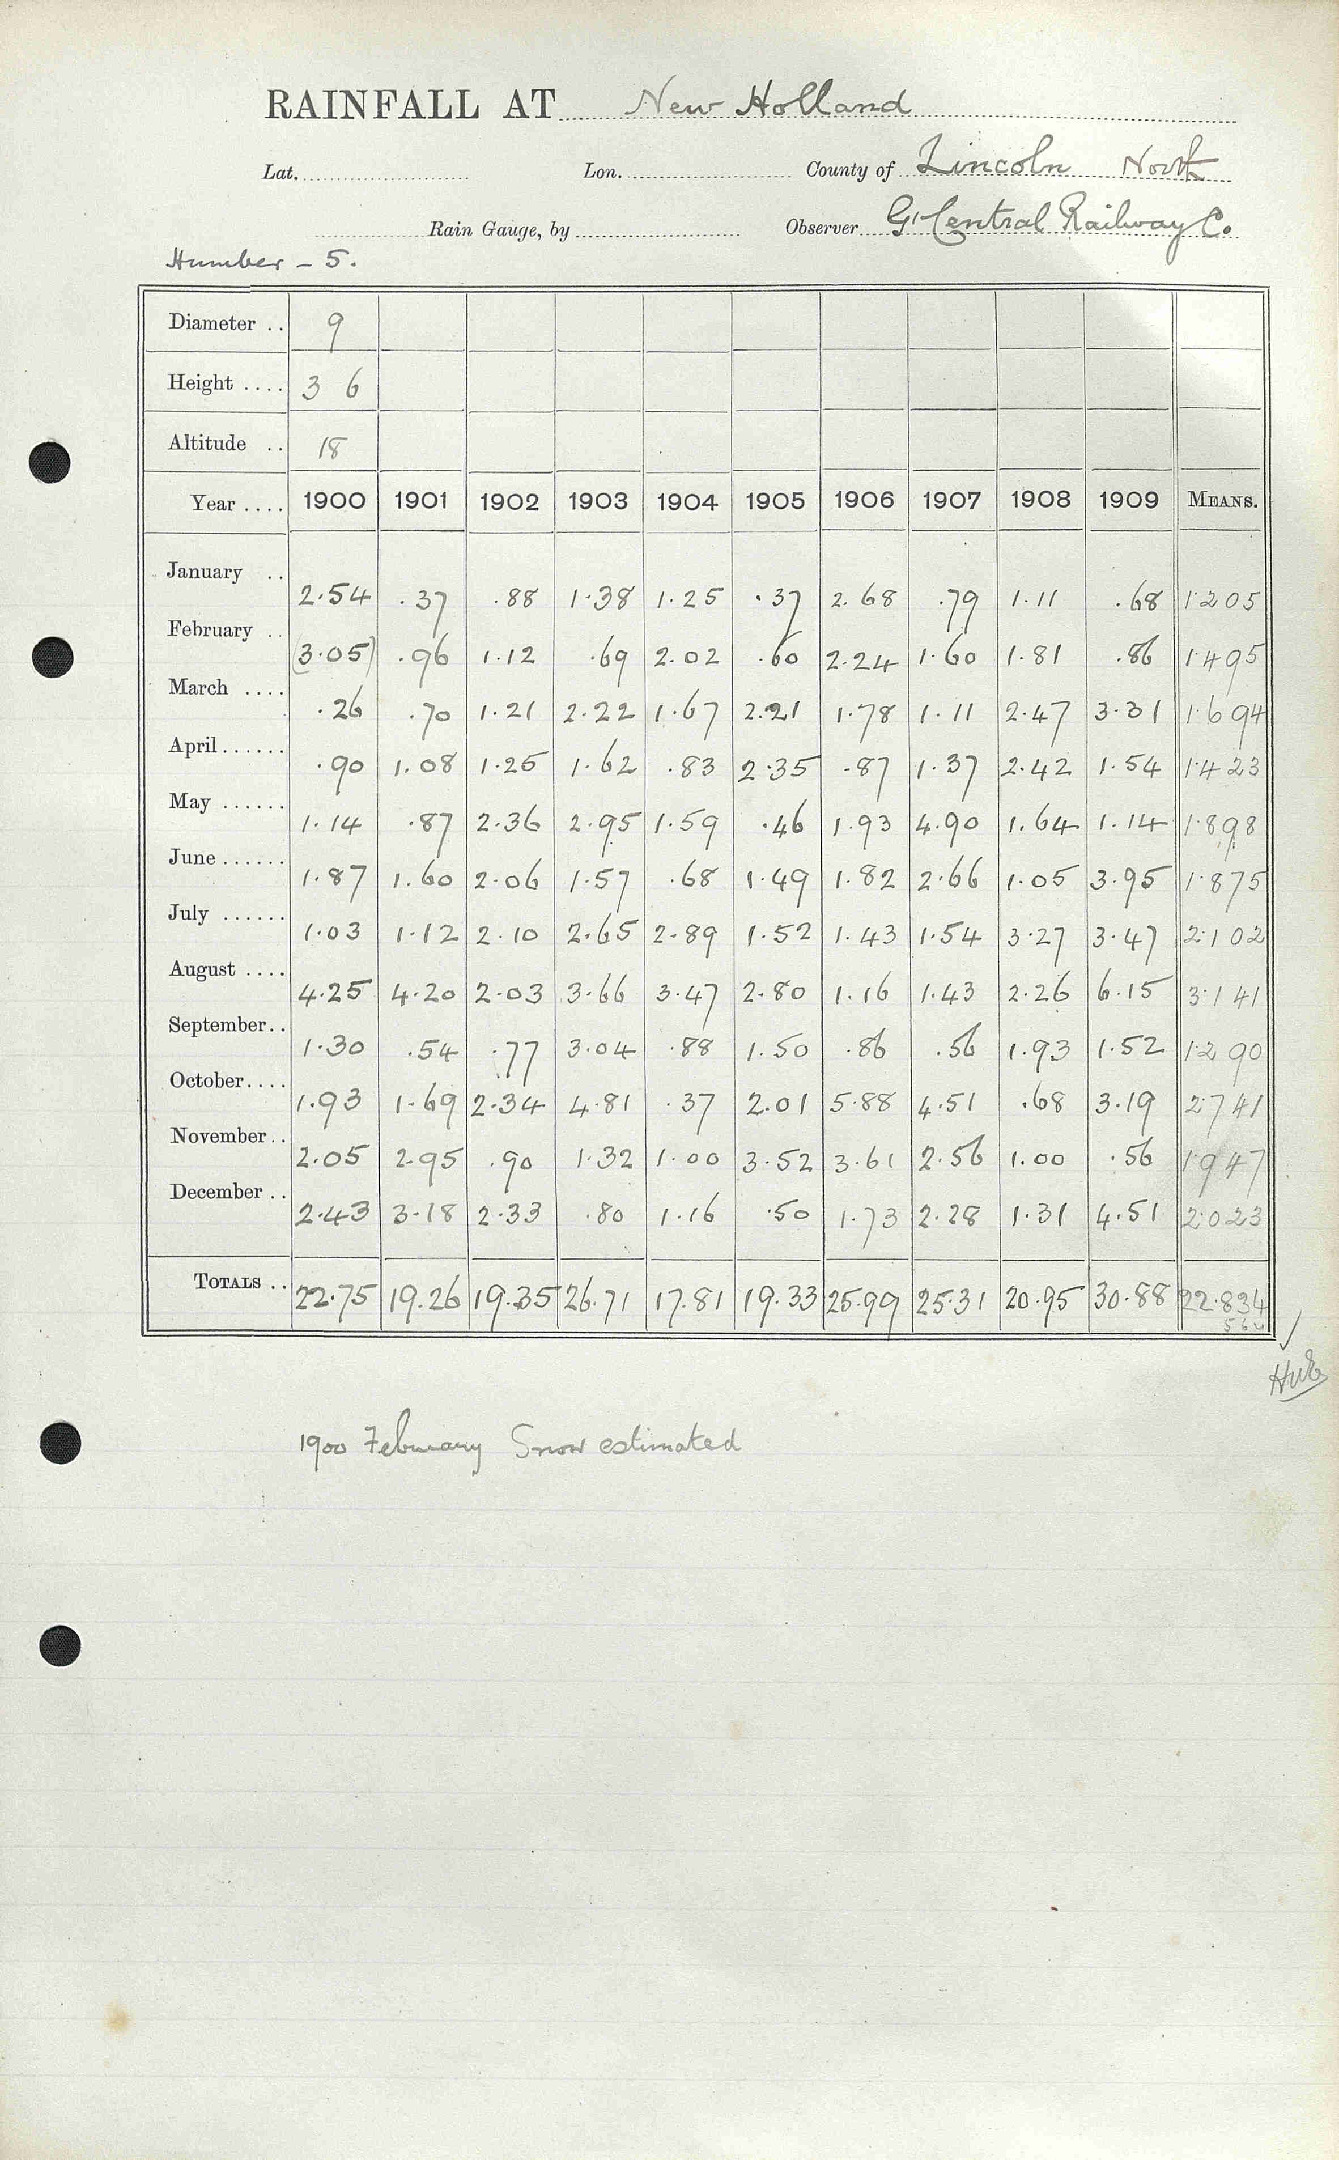 RAINFALL AT New Holland
Lat. Lon. County of Lincoln North
Rain Gauge, by Observer Gt Central Railway Co.
Humber - 5.
Diameter .. 9
Height .... 3 6
Altitude .. 18
Year .... 1900 1901 1902 1903 1904 1905 1906 1907 1908 1909 MEANS.
January .. 2.54 .37 .88 1.38 1.25 .37 2.68 .79 1.11 .68 1.205
February .. (3.05) .96 1.12 .69 2.02 .60 2.24 1.60 1.81 .86 1.495
March .... .26 .70 1.21 2.22 1.67 2.21 1.78 1.11 2.47 3.31 1.694
April ...... .90 1.08 1.25 1.62 .83 2.35 .87 1.37 2.42 1.54 1.423
May ...... 1.14 .87 2.36 2.95 1.59 .46 1.93 4.90 1.64 1.14 1.898
June ...... 1.87 1.60 2.06 1.57 .68 1.49 1.82 2.66 1.05 3.95 1.875
July ...... 1.03 1.12 2.10 2.65 2.89 1.52 1.43 1.54 3.27 3.47 2.102
August .... 4.25 4.20 2.03 3.66 3.47 2.80 1.16 1.43 2.26 6.15 3.141
September.. 1.30 .54 .77 3.04 .88 1.50 .86 .56 1.93 1.52 1.290
October.... 1.93 1.69 2.34 4.81 .37 2.01 5.88 4.51 .68 3.19 2.741
November.. 2.05 2.95 .90 1.32 1.00 3.52 3.61 2.56 1.00 .56 1.947
December .. 2.43 3.18 2.33 .80 1.16 .50 1.73 2.28 1.31 4.51 2.023
TOTALS .. 22.75 19.26 19.35 26.71 17.81 19.33 25.99 25.31 20.95 30.88 22.834
1900 February Snow estimated